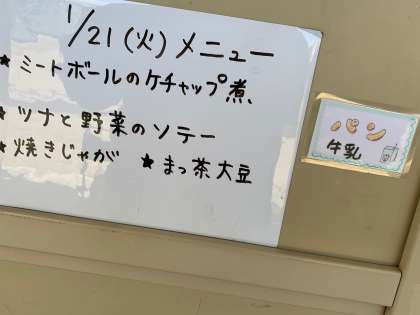 1/21(火)メニュー
★ミートボールのケチャップ煮
★ツナと野菜のソテー
★焼きじゃが ★まっ茶大豆
パン
牛乳